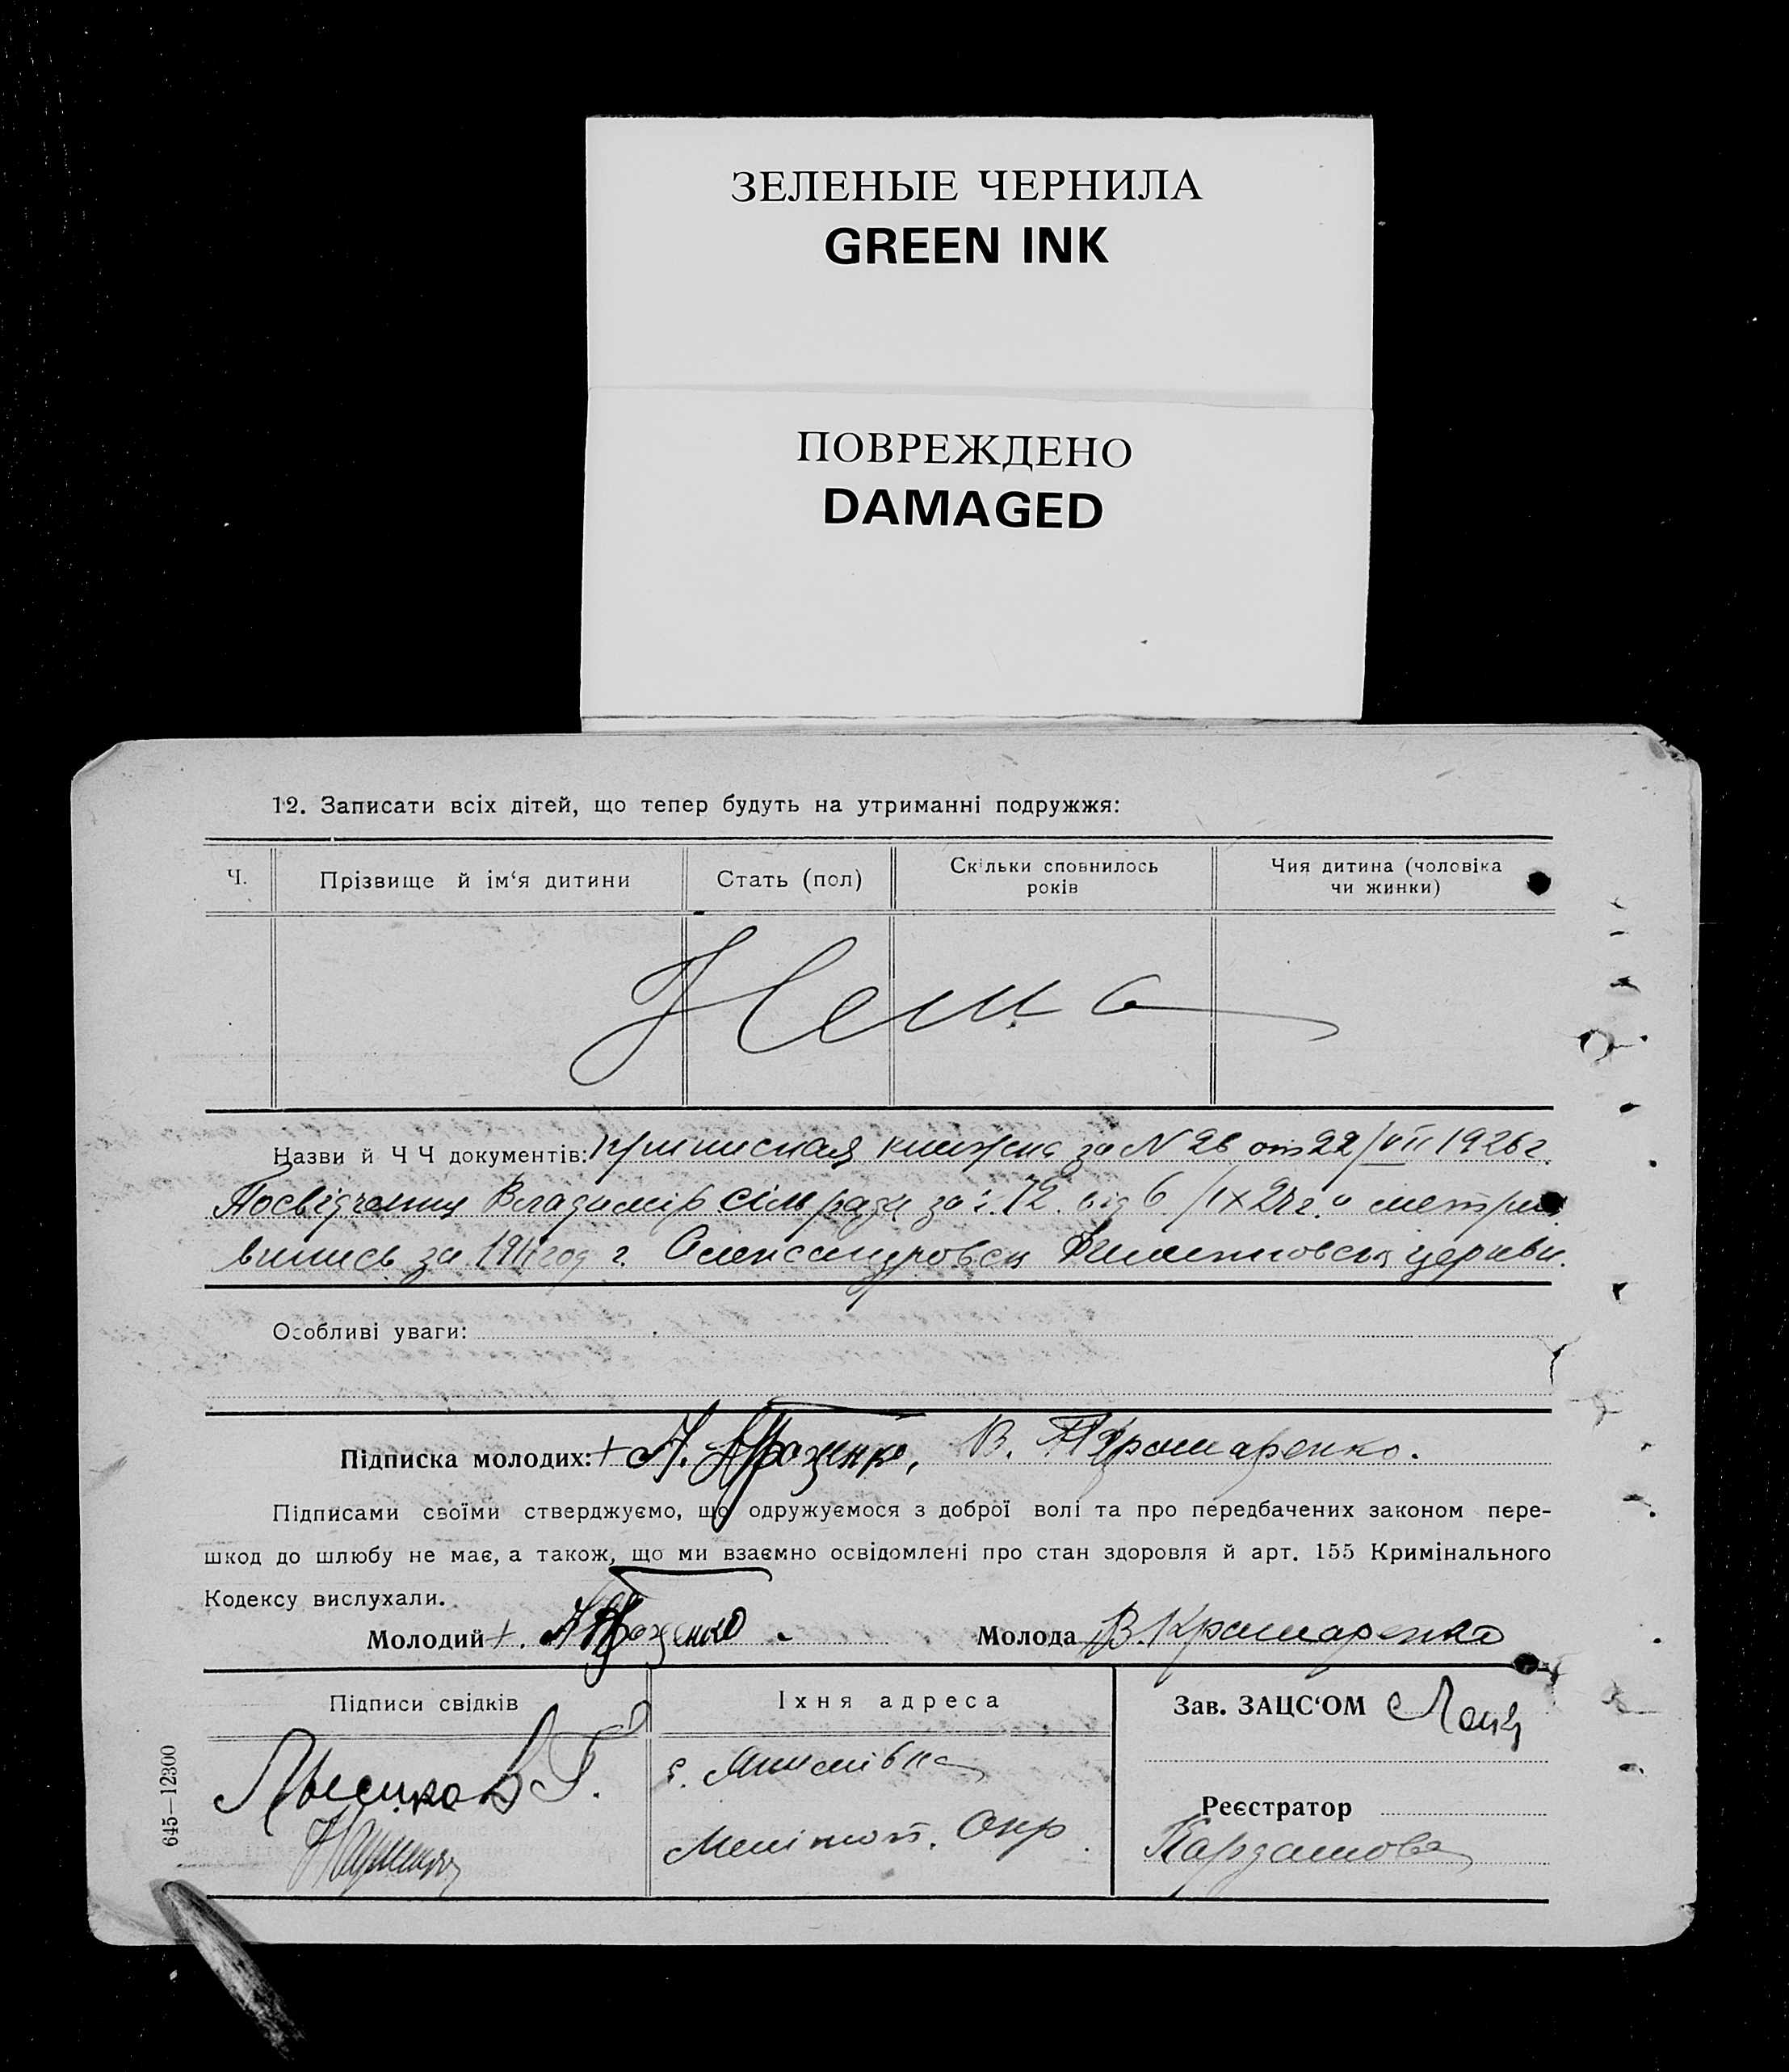 ЗЕЛЕНЫЕ ЧЕРНИЛА
GREEN INK
ПОВРЕЖДЕНО
DAMAGED
12. Записати всіх дітей, що тепер будуть на утриманні подружжя:
Ч.
Прізвище й ім‘я дитини
Стать (пол)
Скільки сповнилось
років
Чия дитина (чоловіка
чи жинки)
Нема
Назви й Ч Ч документів: приписная книжка за N 26 от 22/VII 1926 г.
Посвідчення Владимір сільради за ч. 72 від 6/IX 27 г. и метрич
випись за 1911 год г. Александровск церкви.
Особливі уваги:
Підписка молодих: + В. Крамаренко.
Підписами своїми стверджуємо, що одружуємося з доброї волі та про передбачених законом пере-
шкод до шлюбу не має, а також, що ми взаємно освідомлені про стан здоровля й арт. 155 Кримінального
Кодексу вислухали.
Молодий +
Молода В. Крамаренко
Підписи свідків
Їхня адреса
Зав. ЗАЦС‘ОМ
с. Якимівка
Мелітоп. Окр.
Реєстратор
Кардашова
645—12300